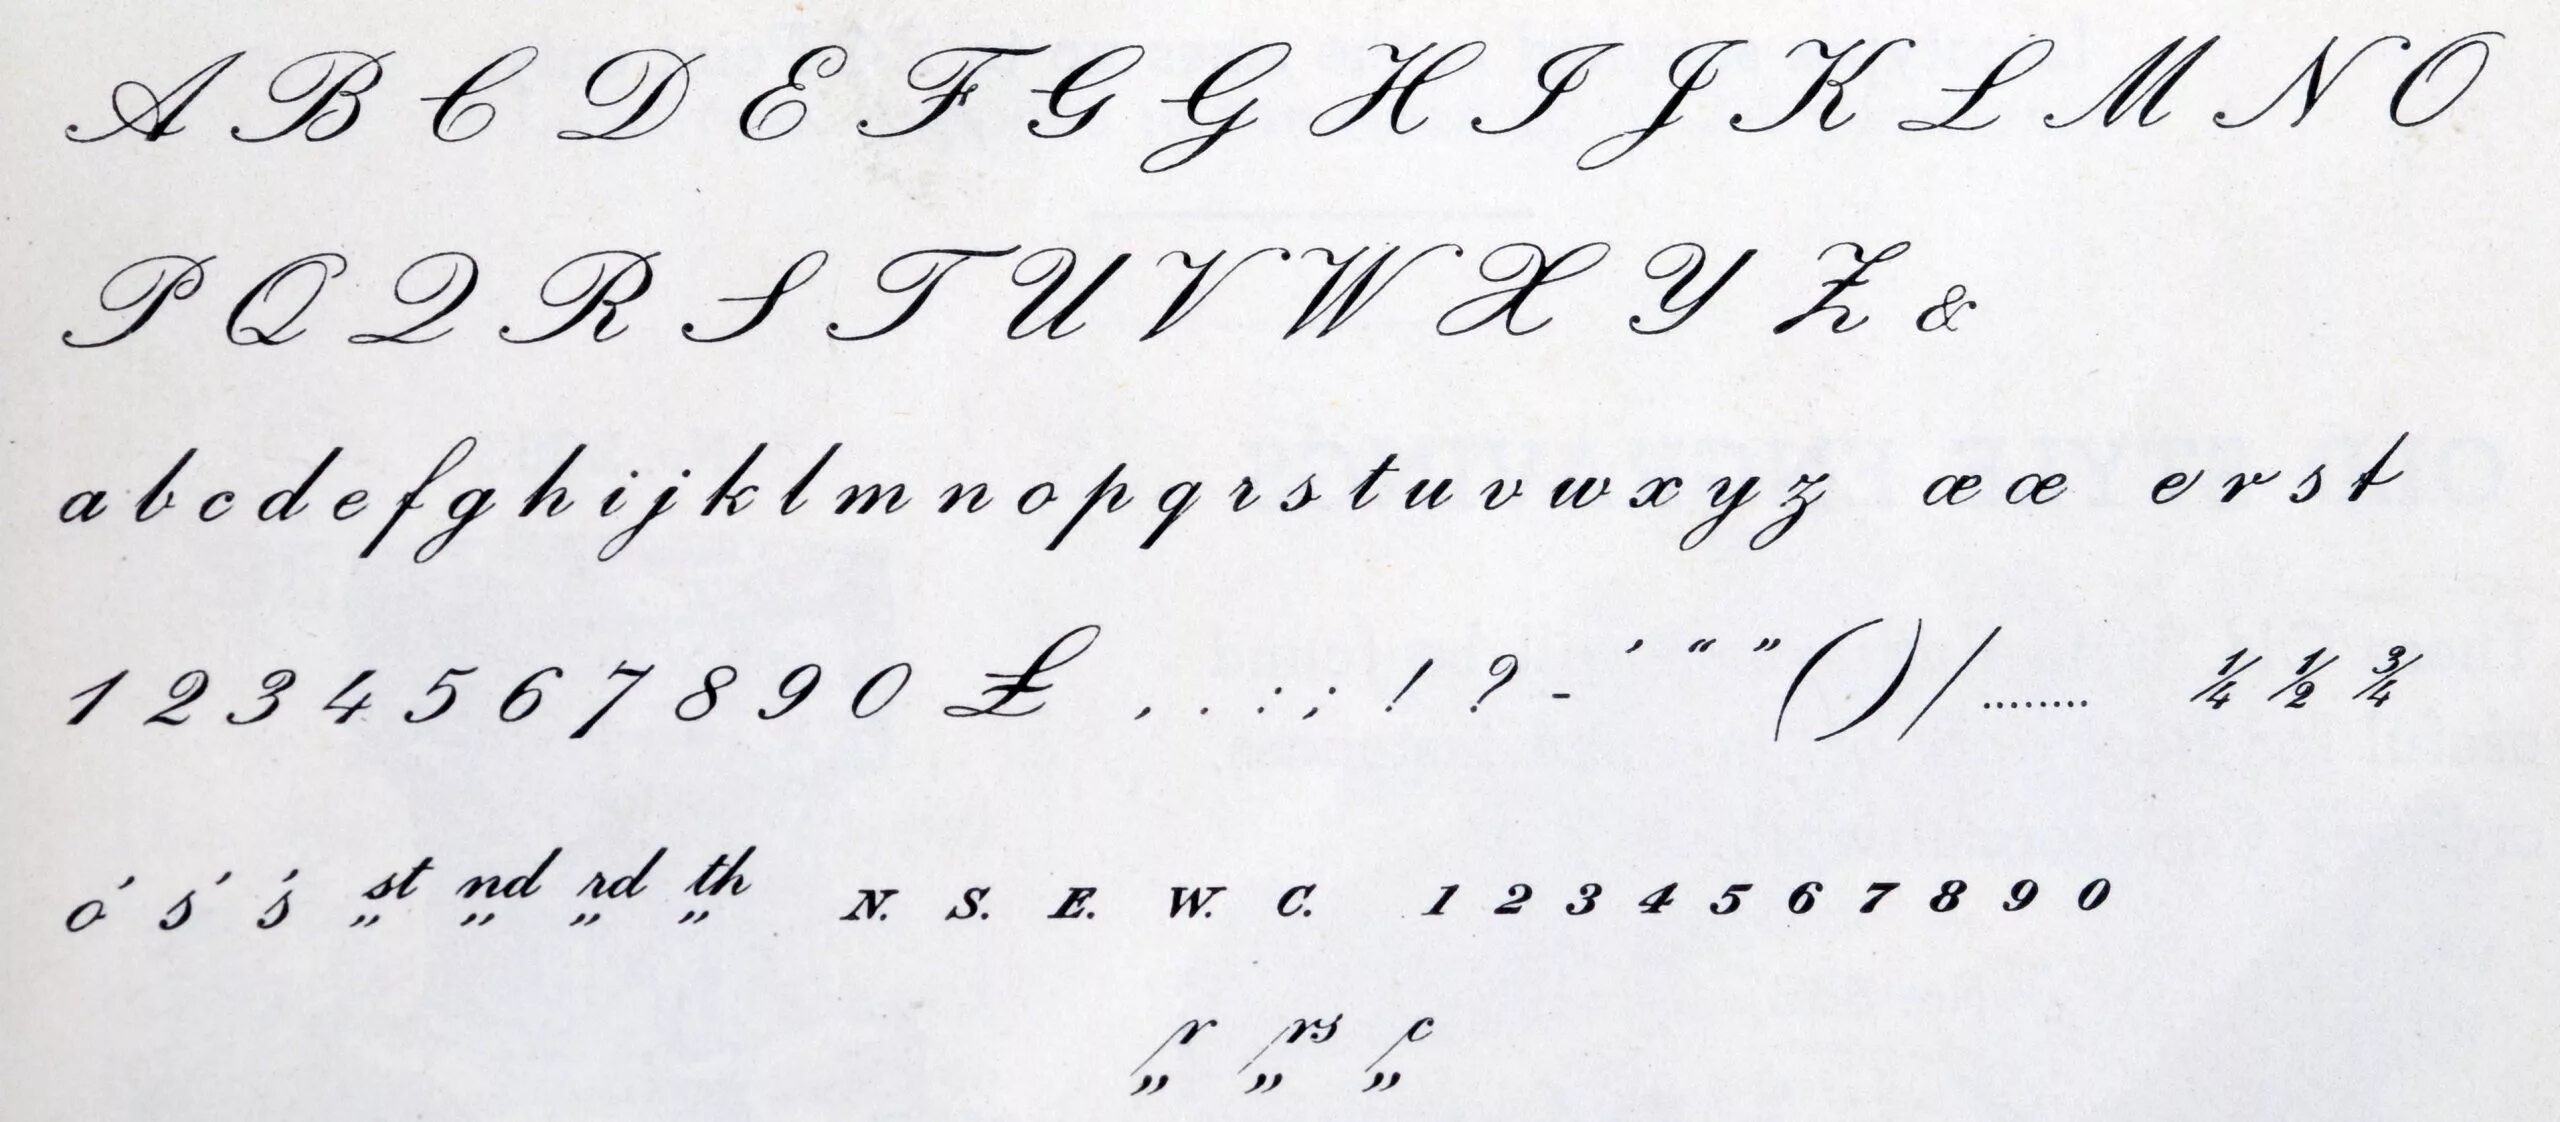 A B C D E F G G H I J K L M N O
P Q Q R S T U V W X Y Z &
a b c d e f g h i j k l m n o p q r s t u v w x y z æ œ e r s t
1 2 3 4 5 6 7 8 9 0 £ , . : ; ! ? - ’ “ ” ( ) / ........ ¼ ½ ¾
o’ s’ ’s st„ nd„ rd„ th„ N. S. E. W. C. 1 2 3 4 5 6 7 8 9 0
/r„ /rs„ /c„